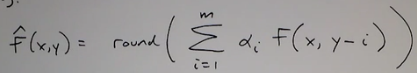 F̂(x,y) = round( ∑_{i=1}^{m} α_i F(x, y-i) )